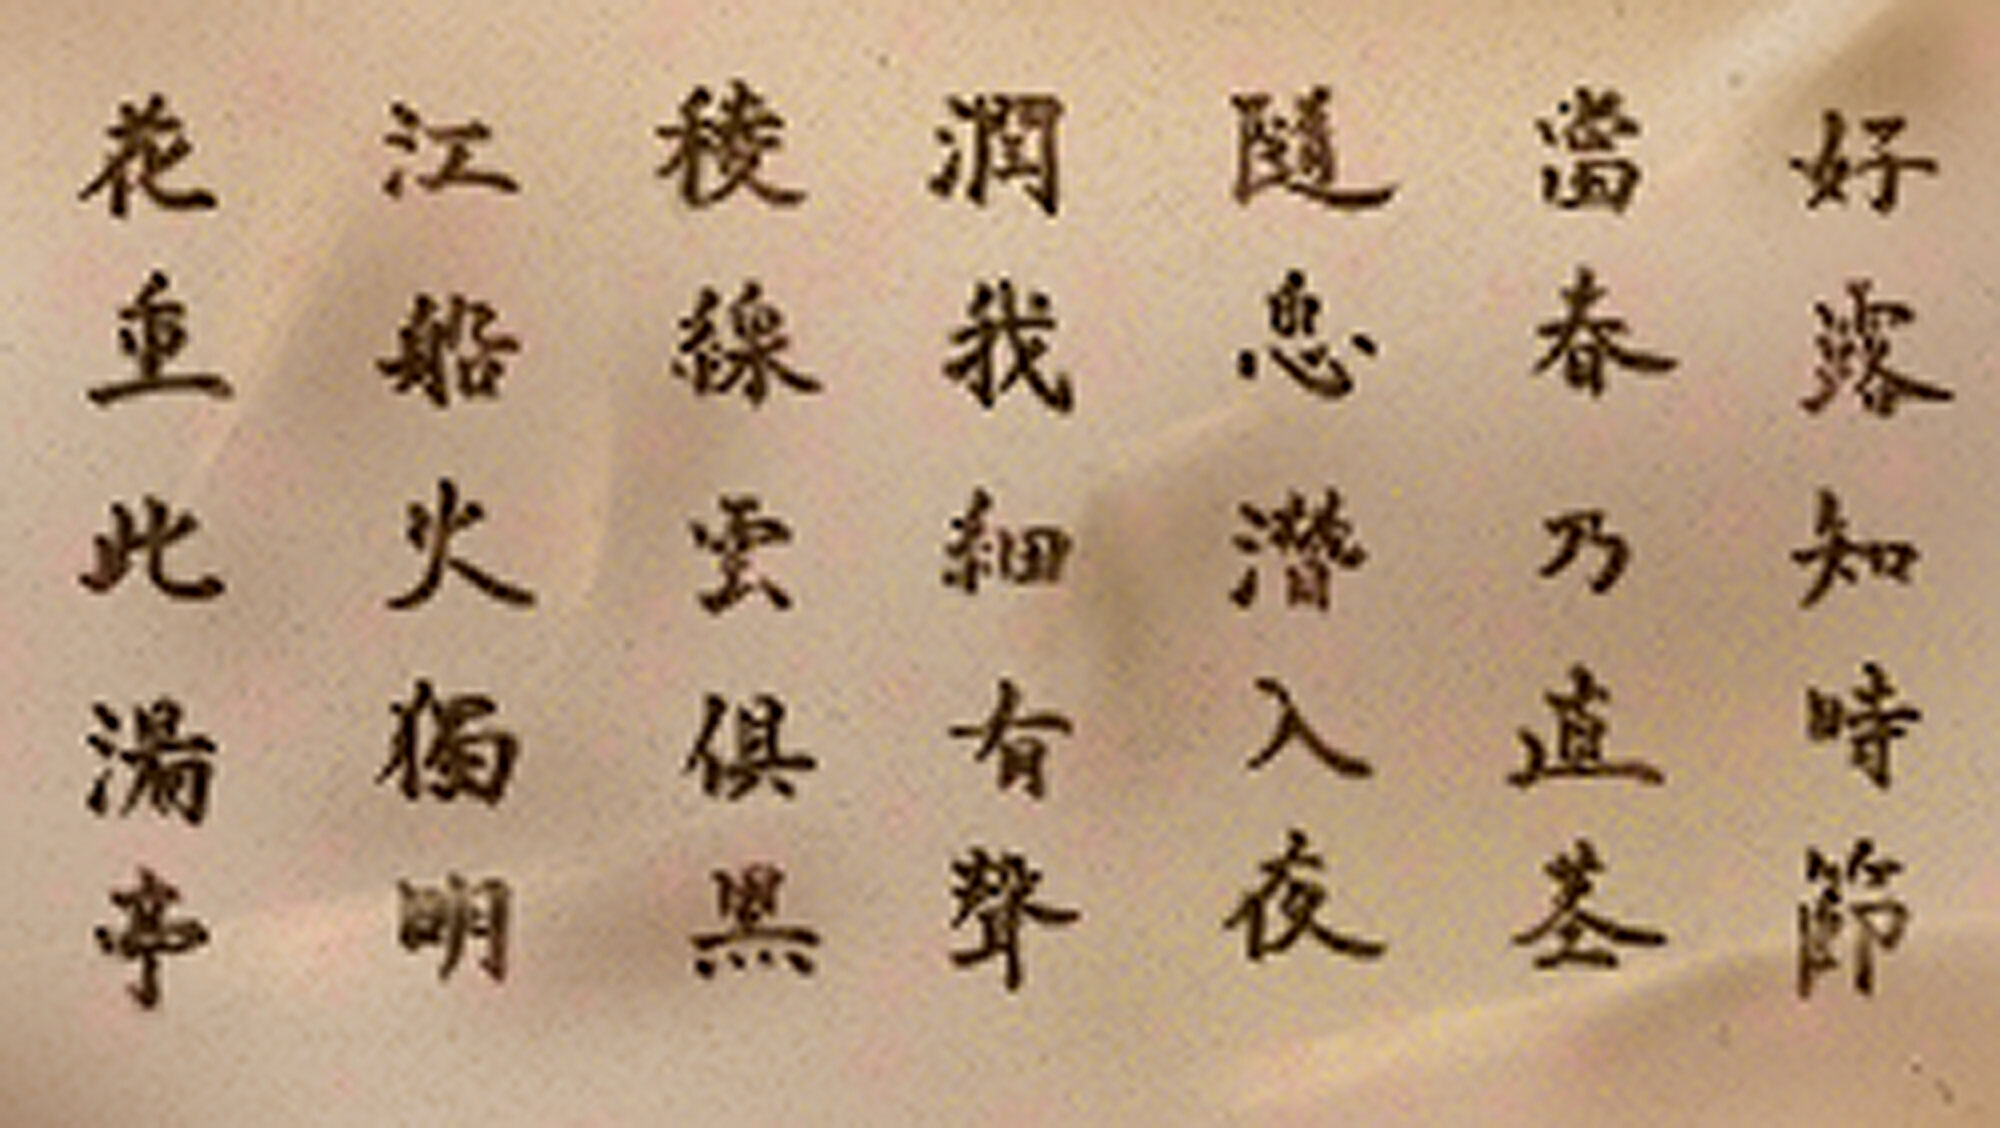 好露知時節
當春乃直
隨息潜入夜
潤我細有聲
稜線雲俱黒
江船火獨明
花重此湯亭